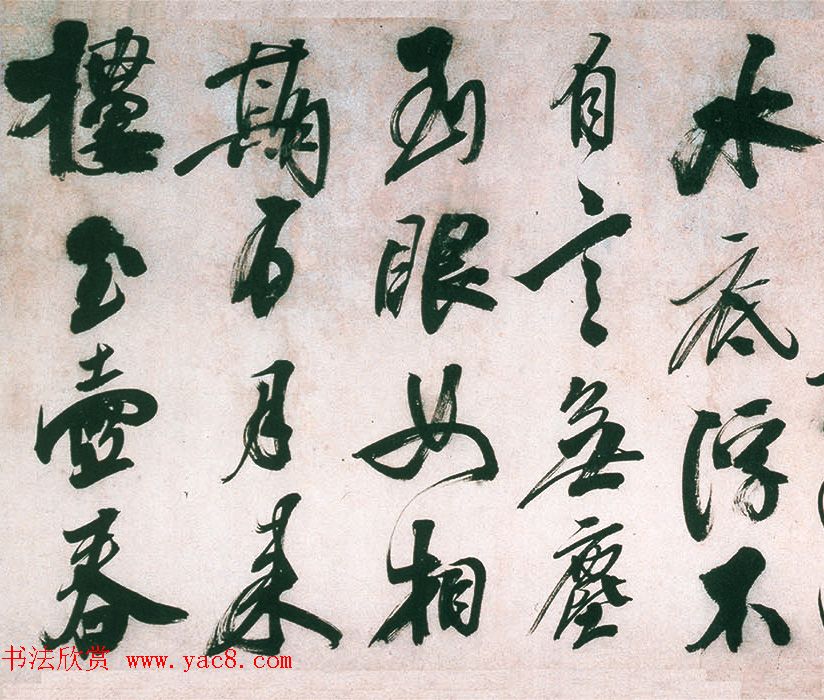 水底浮不
自言無塵
到眼如相
期月来
玉壺春
书法欣赏 www.yac8.com